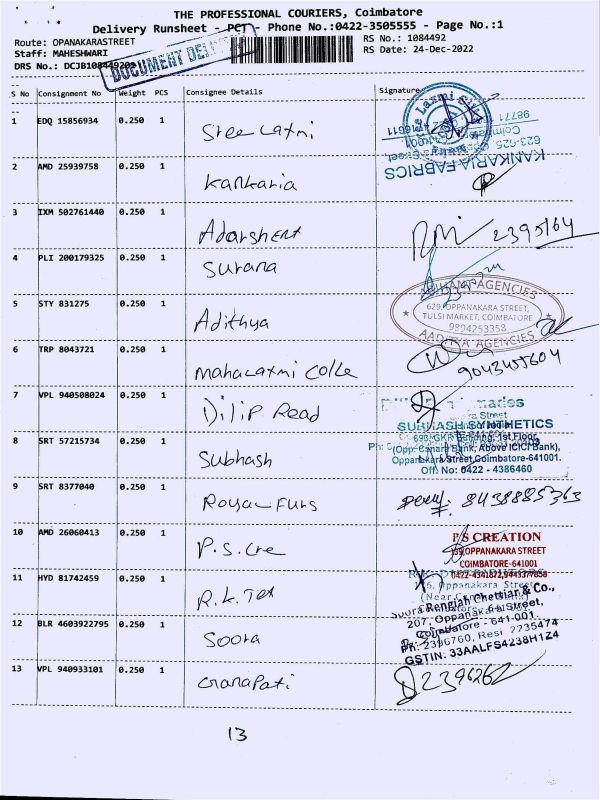 THE PROFESSIONAL COURIERS, Coimbatore
Delivery Runsheet - PCT - Phone No.:0422-3505555 - Page No.:1
Route: OPANAKARASTREET
RS No.: 1084492
Staff: MAHESHWARI
RS Date: 24-Dec-2022
DRS No.: DCJB1084492
DOCUMENT
S No Consignment No Weight PCS Consignee Details Signature
1 EDQ 15856934 0.250 1 Sree Laxmi
KANKARIA FABRICS
2 AMD 25939758 0.250 1 Kankaria
3 IXM 502761440 0.250 1 Adarshent 2395164
4 PLI 200179325 0.250 1 Surana
AGENCIES
629, OPPANAKARA STREET,
TULSI MARKET, COIMBATORE
9894253358
AGENCIES
5 STY 831275 0.250 1 Adithya
6 TRP 8043721 0.250 1 mahalaxmi Colle 9043455604
7 VPL 940508024 0.250 1 Dilip Read
SUBHASH SYNTHETICS
690, GKR Building, 1st Floor,
(Opp. Canara Bank, Above ICICI Bank),
Oppanakara Street, Coimbatore-641001.
Off: No: 0422 - 4386460
8 SRT 57215734 0.250 1 Subhash
9 SRT 8377040 0.250 1 Royal Furs 8438885363
10 AMD 26060413 0.250 1 P.S. Cre
P S CREATION
OPPANAKARA STREET
COIMBATORE-641001
11 HYD 81742459 0.250 1 R.K. Tex
Oppanakara Street
12 BLR 4603922795 0.250 1 Soora
Soora Rengiah Chettiar & Co.,
207, Oppanakara Street,
Coimbatore - 641-001.
Ph: 2396760, Resi 2235474
GSTIN: 33AALFS4238H1Z4
13 VPL 940933101 0.250 1 Ganapati 2396262
13